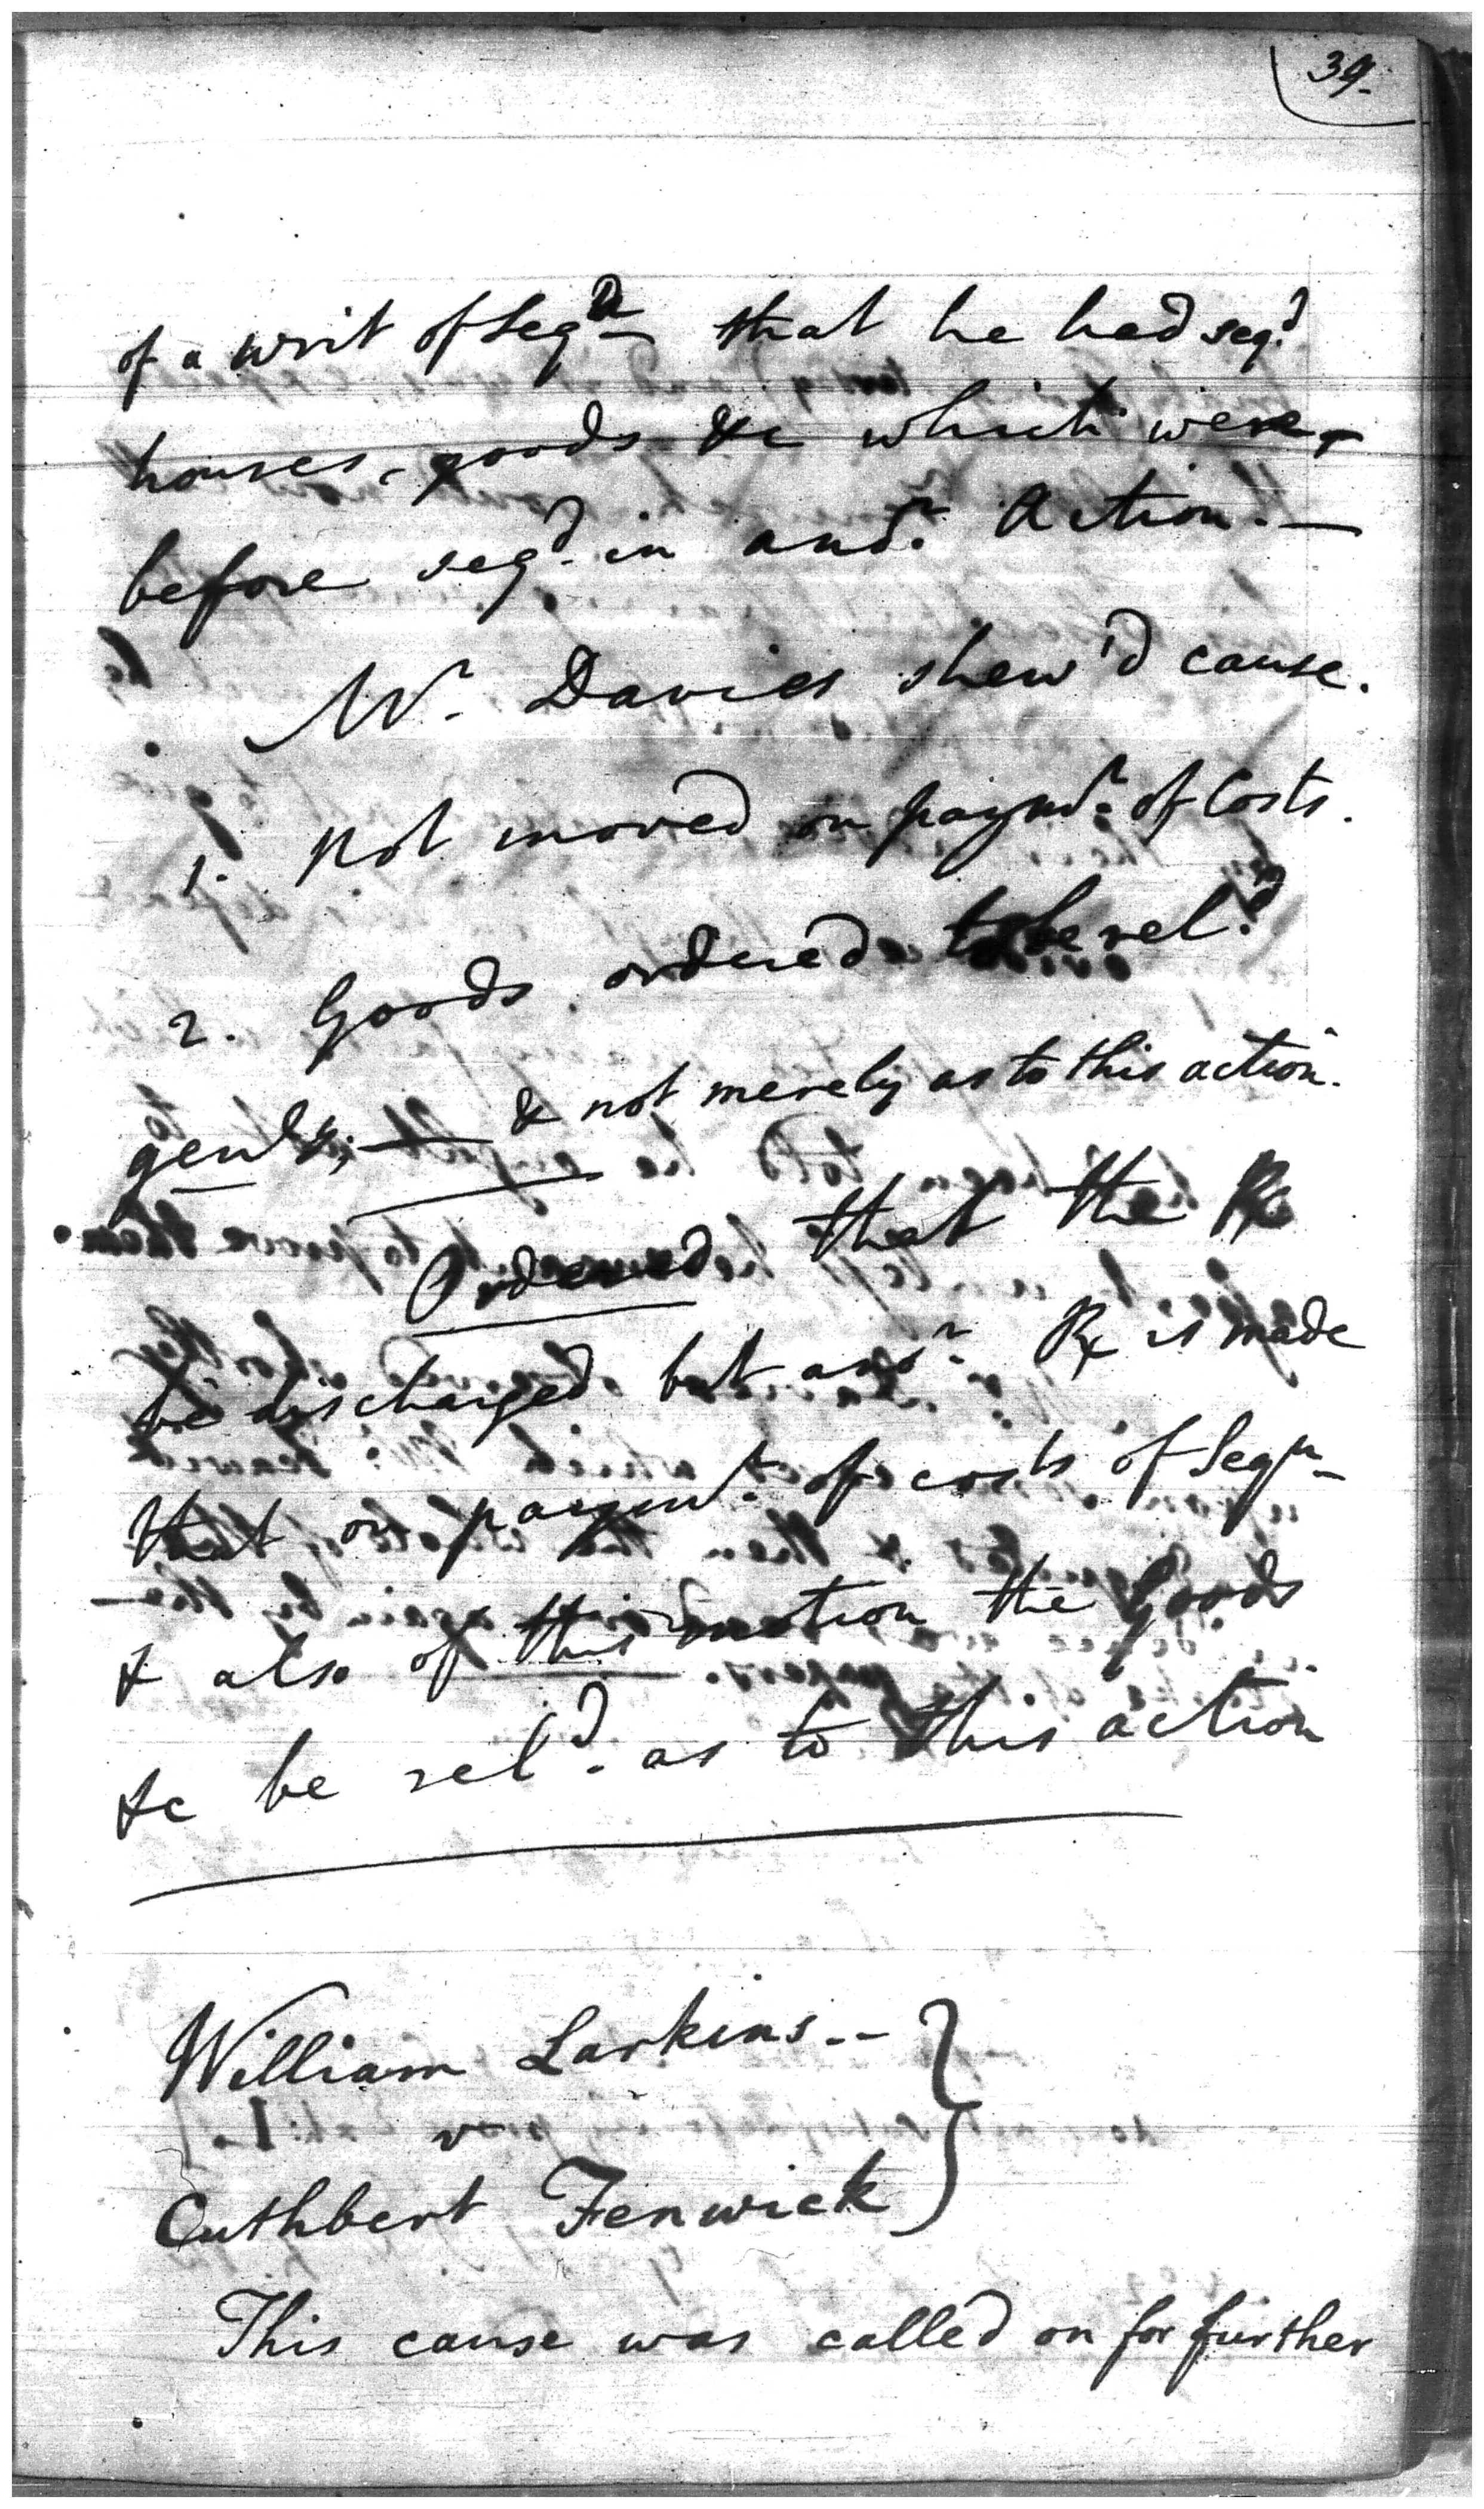 39.
of a writ of Seqn that he had seqd
houses, goods &c which were
before seqd in anor. Action. —
Mr. Davies shew'd cause.
1. Not moved on paymt. of Costs.
2. Goods ordered to be reld.
genly; — & not merely as to this action.
Ordered that the Re
be discharged but anor. Re is made
that on paymt. of costs of Seqn
& also of this motion the Goods
&c be reld. as to this action
William Larkins --
v
Cuthbert Fenwick
This cause was called on for further